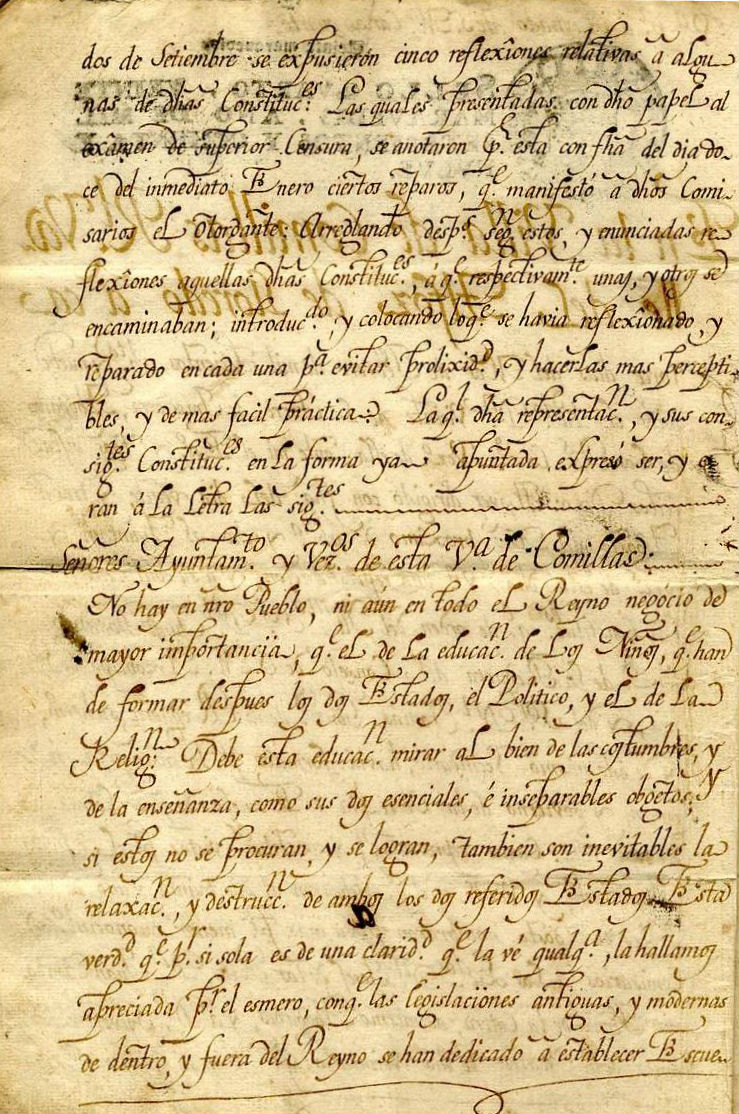 dos de Setiembre se expusieron cinco reflexîones relativas â algu-
nas de dhas Constituc.es Las quales presentadas con dho papel al
exâmen de superior Censura, se anotaron p.r esta con fha del dia do-
ce del inmediato Enero ciertos reparos, q.e manifestó â dhos Comi-
sarios el Otorgante: Arreglando desp.s seg.n estos, y enunciadas re-
flexîones aquellas dhas Constituc.es, â q.e respectivam.te unas, y otras se
encaminaban; introduc.do, y colocando loq.e se havia reflexîonado, y
reparado en cada una p.a evitar prolixid.d, y hacerlas mas percepti-
bles, y de mas facil práctica. La q.l dha representac.n, y sus con-
sig.tes Constituc.es en la forma ya apuntada expresó ser, y e-
ran â la Letra las sig.tes
Señores Ayuntam.to y Vez.os de esta V.a de Comillas.
No hay en nro Pueblo, ni aún en todo el Reyno negócio de
mayor importancia, q.e el de la educac.n de los Niños, q.e han
de formar despues los dos Estados, el Politico, y el de la
Relig.n Debe esta educac.n mirar al bien de las costumbres, y
de la enseñanza, como sus dos esenciales, é inseparables obgetos; y
si estos no se procuran, y se logran, tambien son inevitables la
relaxac.n, y destrucc.n de ambos los dos referidos Estados. Esta
verd.d q.e p.r si sola es de una clarid.d q.e la vé qualq.a, la hallamos
apreciada p.r el esmero, conq.e las legislaciones antiguas, y modernas
de dentro, y fuera del Reyno se han dedicado â establecer Escue-